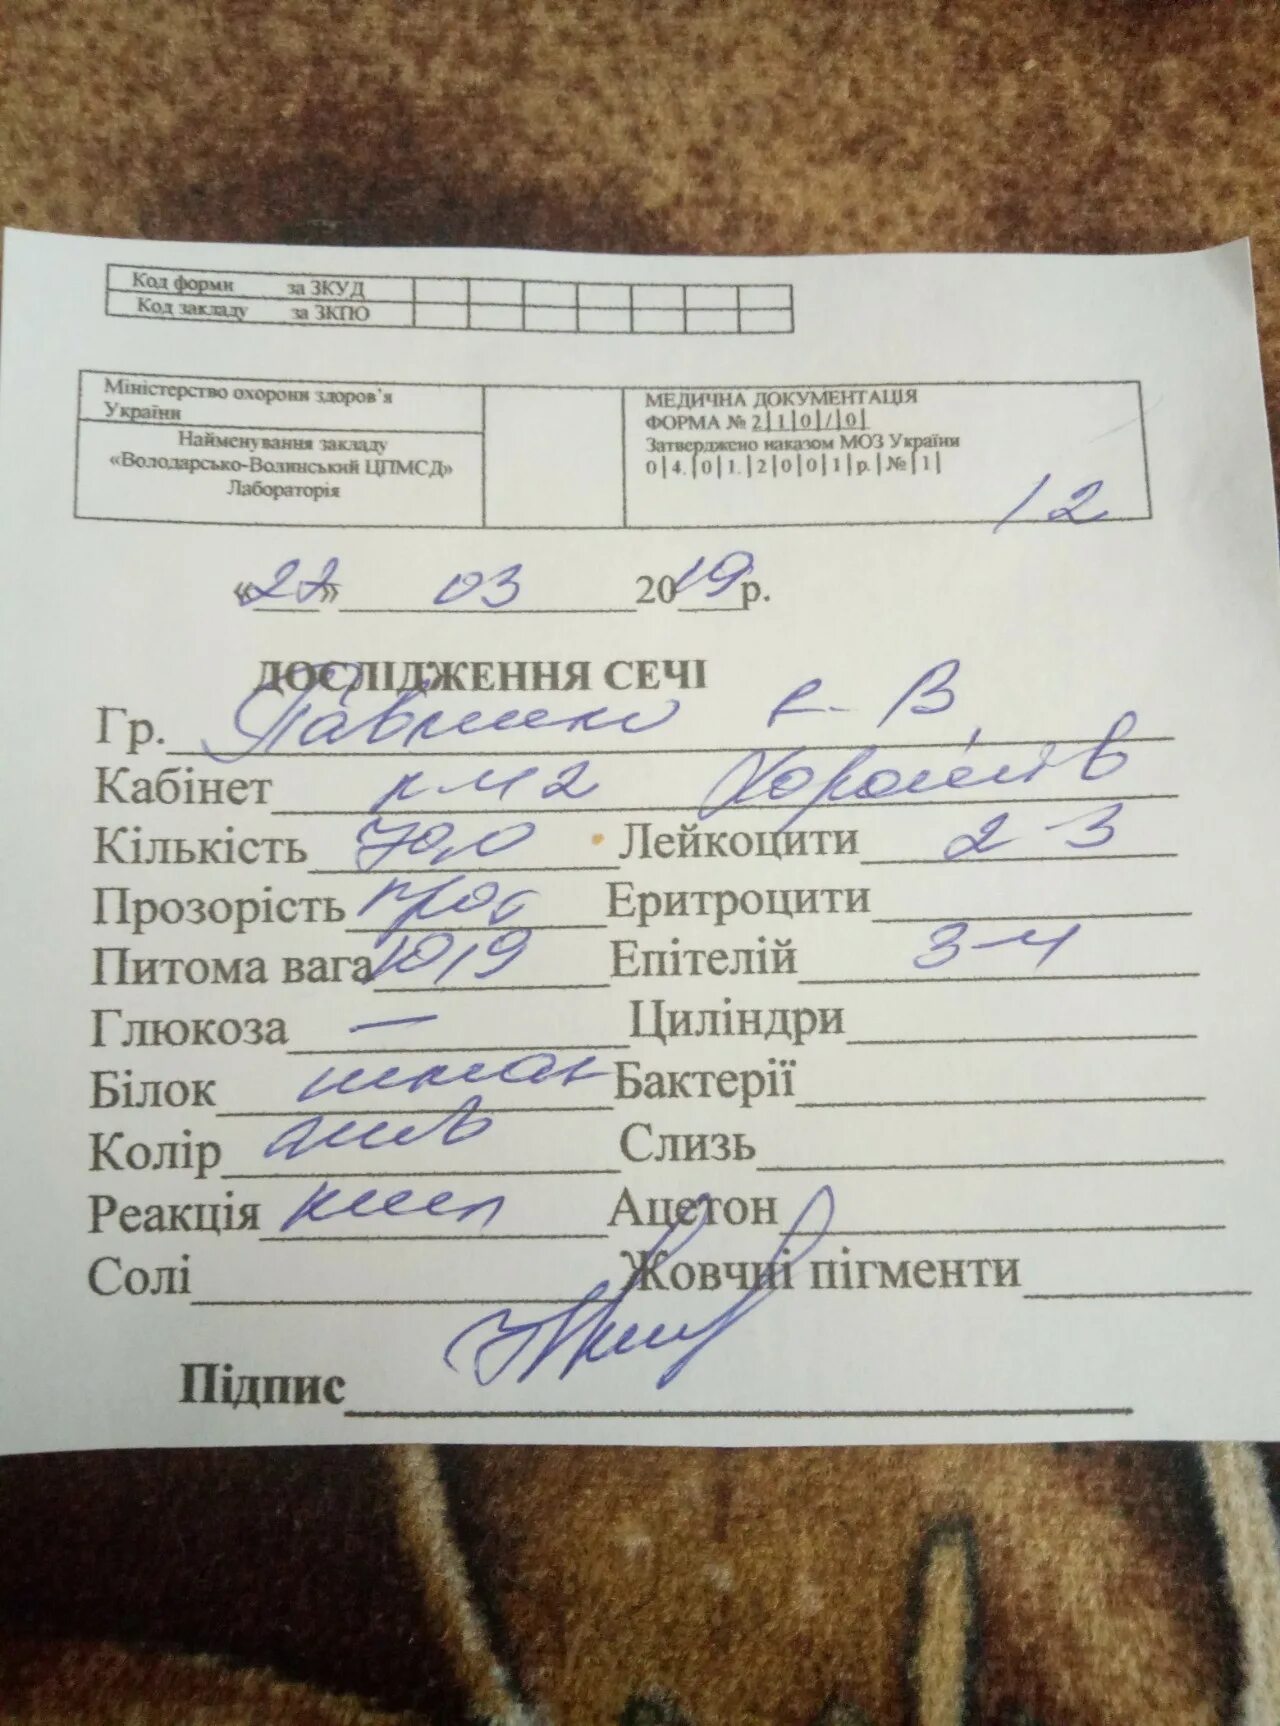 Код форми за ЗКУД
Код закладу за ЗКПО
Міністерство охорони здоров'я
України
Найменування закладу
«Володарсько-Волинський ЦПМСД»
Лабораторія
МЕДИЧНА ДОКУМЕНТАЦІЯ
ФОРМА № 2|1|0|/|0|
Затверджено наказом МОЗ України
0|4.|0|1.|2|0|0|1|р.|№|1|
12
«27» 03 2019 р.
ДОСЛІДЖЕННЯ СЕЧІ
Гр. В.
Кабінет
Кількість 70,0 Лейкоцити 2 3
Прозорість проз Еритроцити
Питома вага 1019 Епітелій 3-4
Глюкоза — Циліндри
Білок Бактерії
Колір Слизь
Реакція кисл Ацетон
Солі Жовчні пігменти
Підпис